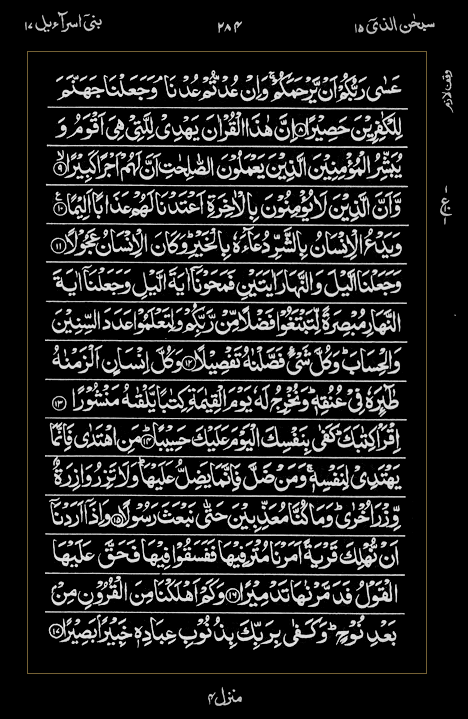 سبحٰن الذیٓ ۱۵
۲۸۴
بنیٓ اسرآءیل ۱۷
وقف لازم
عَسٰى رَبُّكُمْ اَنْ يَّرْحَمَكُمْ ۚ وَاِنْ عُدْتُّمْ عُدْنَا ۘ وَجَعَلْنَا جَهَنَّمَ
لِلْكٰفِرِيْنَ حَصِيْرًا ۝۸ اِنَّ هٰذَا الْقُرْاٰنَ يَهْدِيْ لِلَّتِيْ هِيَ اَقْوَمُ وَ
يُبَشِّرُ الْمُؤْمِنِيْنَ الَّذِيْنَ يَعْمَلُوْنَ الصّٰلِحٰتِ اَنَّ لَهُمْ اَجْرًا كَبِيْرًا ۝۹ۙ
وَّاَنَّ الَّذِيْنَ لَا يُؤْمِنُوْنَ بِالْاٰخِرَةِ اَعْتَدْنَا لَهُمْ عَذَابًا اَلِيْمًا ۝۱۰ۧ
وَيَدْعُ الْاِنْسَانُ بِالشَّرِّ دُعَآءَهٗ بِالْخَيْرِ ؕ وَكَانَ الْاِنْسَانُ عَجُوْلًا ۝۱۱
وَجَعَلْنَا الَّيْلَ وَالنَّهَارَ اٰيَتَيْنِ فَمَحَوْنَاۤ اٰيَةَ الَّيْلِ وَجَعَلْنَاۤ اٰيَةَ
النَّهَارِ مُبْصِرَةً لِّتَبْتَغُوْا فَضْلًا مِّنْ رَّبِّكُمْ وَلِتَعْلَمُوْا عَدَدَ السِّنِيْنَ
وَالْحِسَابَ ؕ وَكُلَّ شَيْءٍ فَصَّلْنٰهُ تَفْصِيْلًا ۝۱۲ وَكُلَّ اِنْسَانٍ اَلْزَمْنٰهُ
طٰٓئِرَهٗ فِيْ عُنُقِهٖ ؕ وَنُخْرِجُ لَهٗ يَوْمَ الْقِيٰمَةِ كِتٰبًا يَّلْقٰىهُ مَنْشُوْرًا ۝۱۳
اِقْرَاْ كِتٰبَكَ ؕ كَفٰى بِنَفْسِكَ الْيَوْمَ عَلَيْكَ حَسِيْبًا ۝۱۴ؕ مَنِ اهْتَدٰى فَاِنَّمَا
يَهْتَدِيْ لِنَفْسِهٖ ۚ وَمَنْ ضَلَّ فَاِنَّمَا يَضِلُّ عَلَيْهَا ؕ وَلَا تَزِرُ وَازِرَةٌ
وِّزْرَ اُخْرٰى ؕ وَمَا كُنَّا مُعَذِّبِيْنَ حَتّٰى نَبْعَثَ رَسُوْلًا ۝۱۵ وَاِذَاۤ اَرَدْنَاۤ
اَنْ نُّهْلِكَ قَرْيَةً اَمَرْنَا مُتْرَفِيْهَا فَفَسَقُوْا فِيْهَا فَحَقَّ عَلَيْهَا
الْقَوْلُ فَدَمَّرْنٰهَا تَدْمِيْرًا ۝۱۶ وَكَمْ اَهْلَكْنَا مِنَ الْقُرُوْنِ مِنْۢ
بَعْدِ نُوْحٍ ؕ وَكَفٰى بِرَبِّكَ بِذُنُوْبِ عِبَادِهٖ خَبِيْرًۢا بَصِيْرًا ۝۱۷
منزل ۴